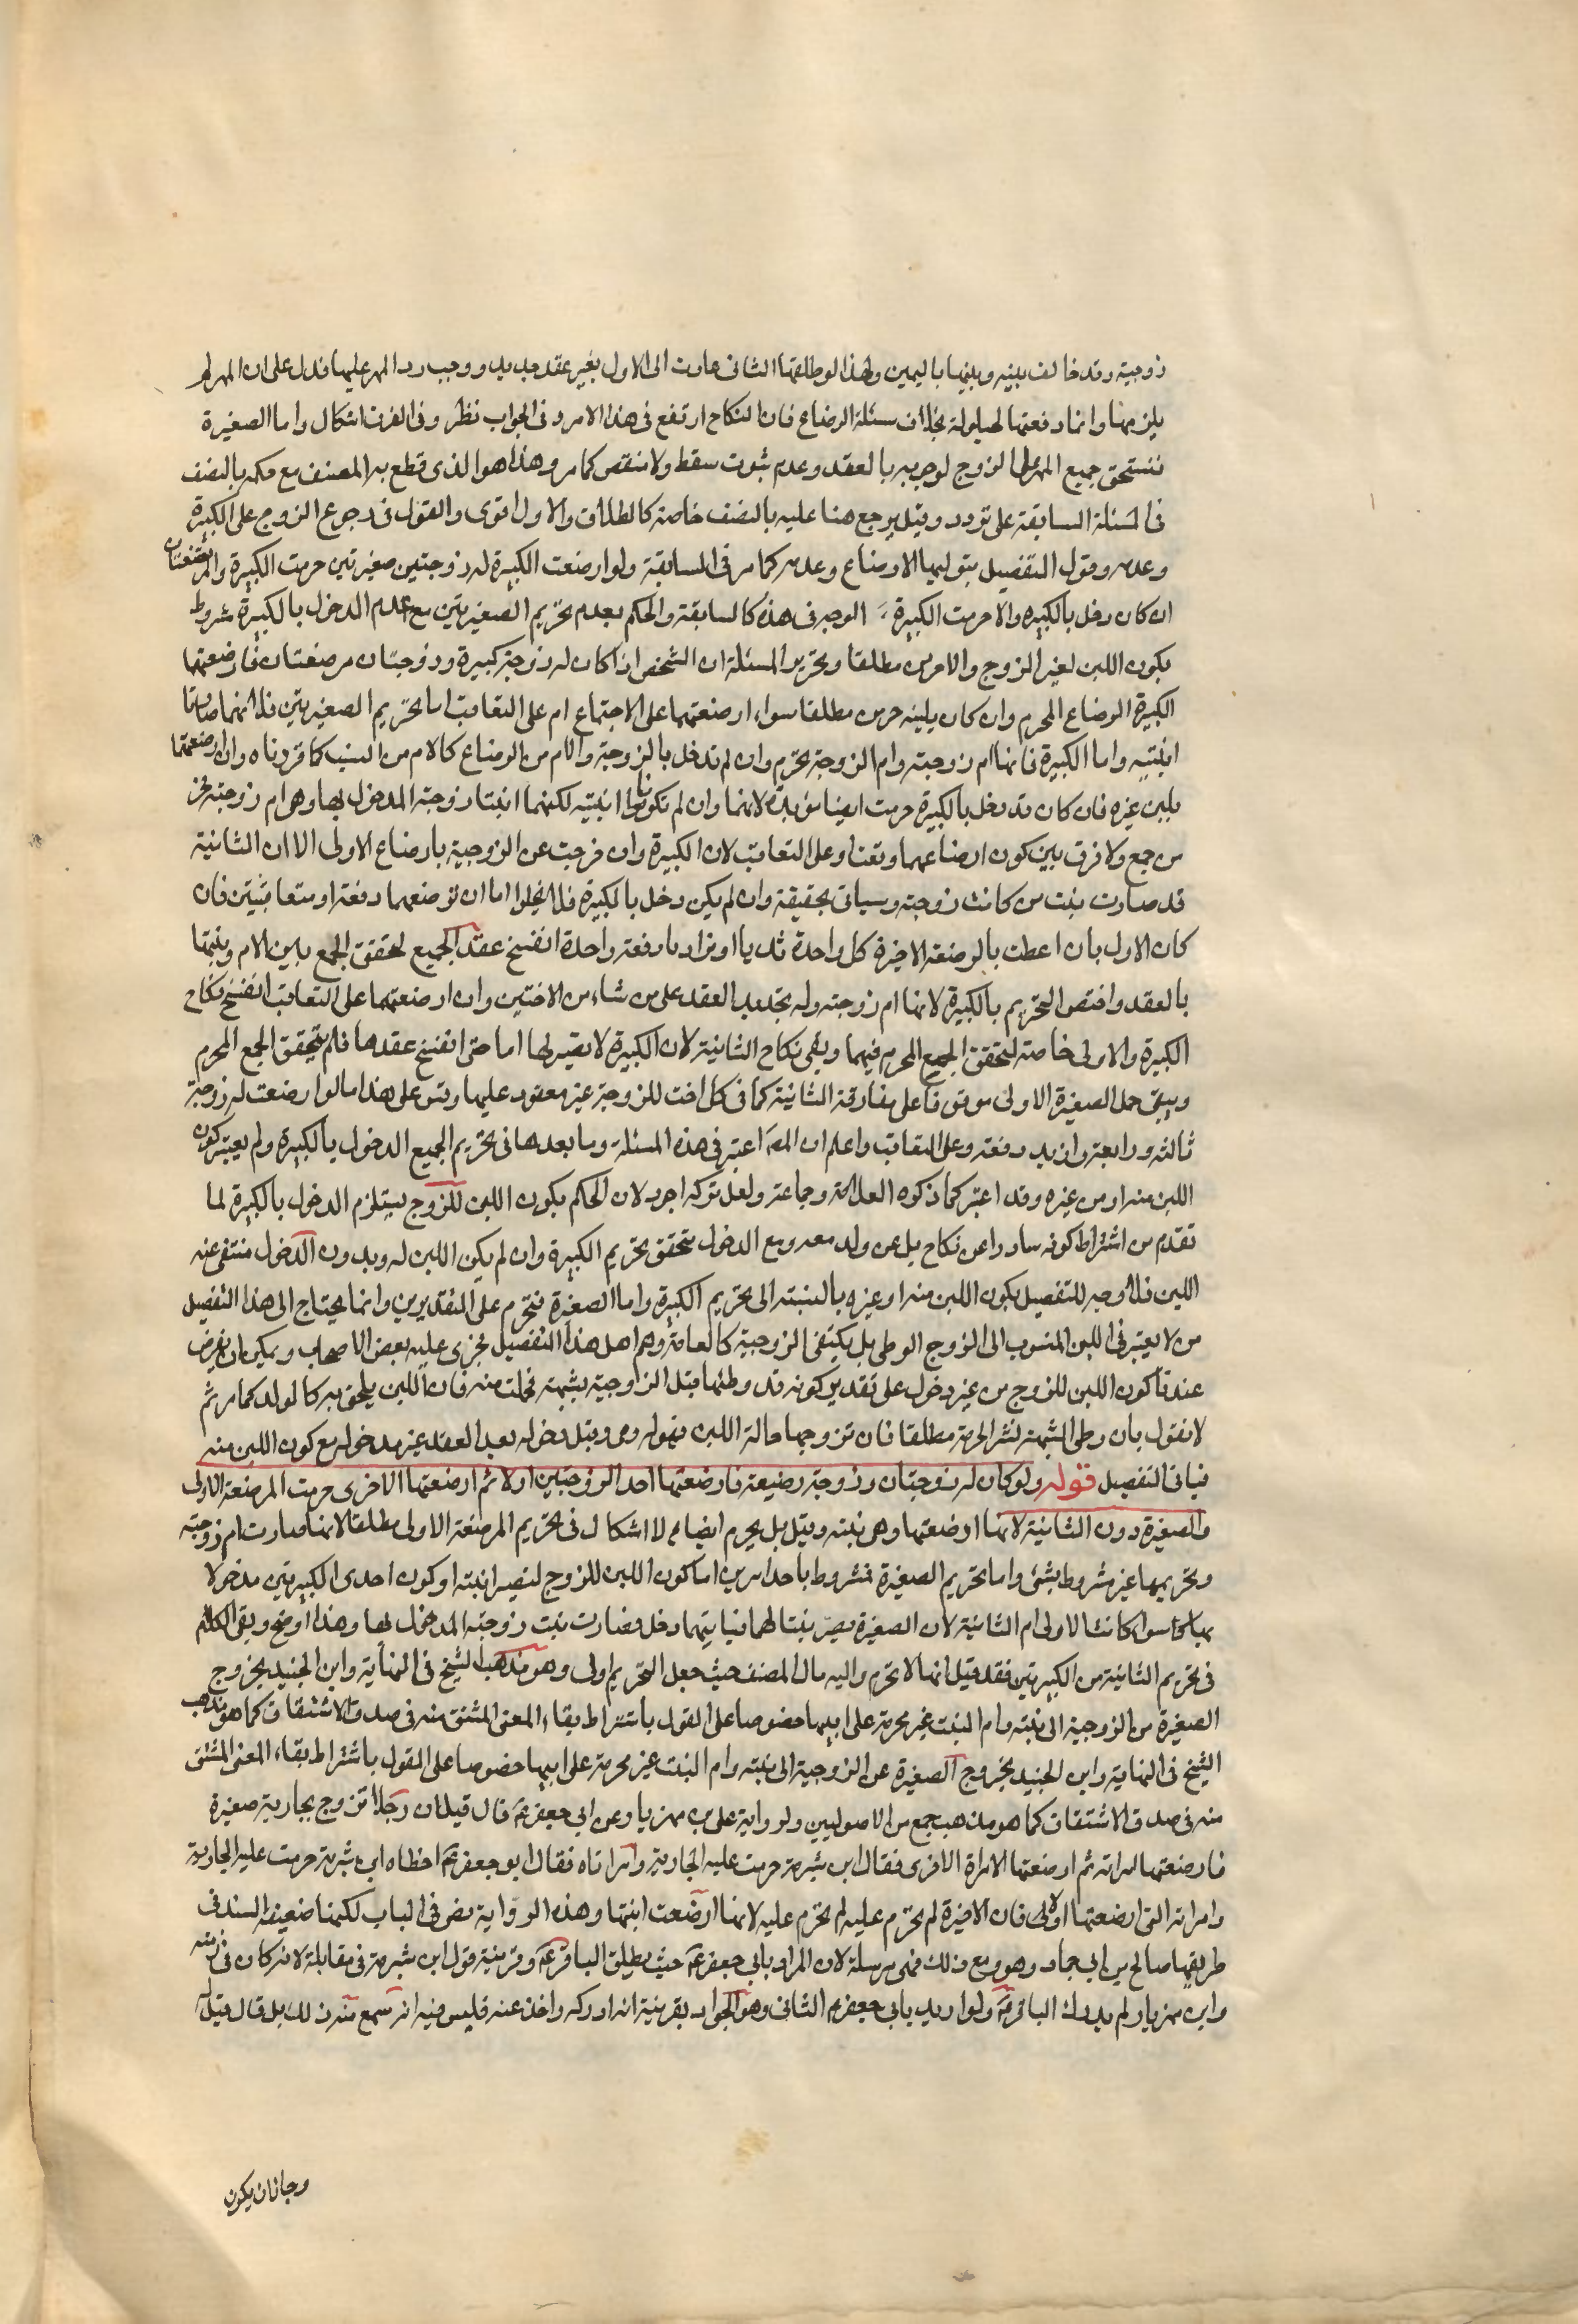 زوجيته وقد خالف بينه وبينها باليمين ولهذا لو طلقها الثانى عادت الى الاول بغير عقد جديد ووجب رد المهر عليها فدل على ان المهر لم
يلزمها وانما دفعتها لحيلولة بخلاف مسئلة الرضاع فان النكاح ارتفع فى هذا الامر وفى الجواب نظر وفى الفرق اشكال واما الصغيرة
فتستحق جميع المهر على الزوج لوجوبه بالعقد وعدم ثبوت مسقط ولا منقص كما مر وهذا هو الذى قطع به المصنف مع حكمه بالنصف
فى المسئلة السابقة على تردد وقيل يرجع هنا عليه بالنصف خاصة كالطلاق والاول اقوى والقول فى رجوع الزوج على الكبيرة
وعدمه وقول التفصيل بتوليها الارضاع وعدمه كما مر فى السابقة ولو ارضعت الكبيرة له زوجتين صغيرتين حرمت الكبيرة والمرتضعتان
ان كان دخل بالكبيره والا حرمت الكبيرة الوجه فى هذه كالسابقة والحكم بعدم تحريم الصغيرتين مع عدم الدخول بالكبيرة مشروط
بكون اللبن لغير الزوج والا حرمن مطلقا وتحرير المسئلة ان الشخص اذا كان له زوجة كبيرة وزوجتان مرضعتان فارضعتهما
الكبيرة الرضاع المحرم وان كان بلبنه حرمن مطلقا سواء ارضعتهما على الاجتماع ام على التعاقب اما تحريم الصغيرتين فلانهما صارتا
ابنتيه واما الكبيرة فانها ام زوجته وام الزوجة تحرم وان لم تدخل بالزوجة والام من الرضاع كالام من النسب كما قررناه وان ارضعتهما
بلبن غيره فان كان قد دخل بالكبيرة حرمت ايضا مؤبدة لانهما وان لم تكونا ابنتيه لكنهما ابنتا زوجته المدخول بها وهى ام زوجته فحرمن
من جمع ولا فرق بين كون ارضاعهما وقتا وعلى التعاقب لان الكبيرة وان خرجت عن الزوجية بارضاع الاولى الا ان الثانية
قد صارت بنت من كانت زوجته وسياتى تحقيقه وان لم يكن دخل بالكبيرة فلا يخلوا اما ان ترضعهما دفعة او متعاقبتين فان
كان الاول بان اعطت بالرضعة الاخيرة كل واحدة ثديا او نزلا دفعة واحدة انفسخ عقد الجميع لتحقق الجمع بين الام وبنتها
بالعقد واختص التحريم بالكبيرة لانها ام زوجته وله تجديد العقد على من شاء من الاختين وان ارضعتهما على التعاقب انفسخ نكاح
الكبيرة والاولى خاصة لتحقق الجمع المحرم فيهما وبقى نكاح الثانية لان الكبيرة لا تصير لها اما حتى انفسخ عقدها فلم يتحقق الجمع المحرم
ويبقى حل الصغيرة الاولى موقوفا على مفارقة الثانية كما فى كل اخت للزوجة غير معقود عليها وقس على هذا ما لو ارضعت له زوجة
ثالثة ورابعة وازيد دفعة وعلى التعاقب واعلم ان المص اعتبر فى هذه المسئلة وما بعدها فى تحريم الجميع الدخول بالكبيرة ولم يعتبر كون
اللبن منه او من غيره وقد اعتبر كما ذكره العلامة وجماعة ولعل تركه اجود لان الحكم بكون اللبن للزوج يستلزم الدخول بالكبيرة لما
تقدم من اشتراط كونه صادرا عن نكاح بل عن ولد معه ومع الدخول يتحقق تحريم الكبيرة وان لم يكن اللبن له وبدون الدخول منتفى عنه
اللبن فلا وجه للتفصيل بكون اللبن منه او غيره بالنسبة الى تحريم الكبيرة واما الصغيرة فتحرم على التقديرين وانما يحتاج الى هذا التفصيل
من لا يعتبر فى اللبن المنسوب الى الزوج الوطى بل يكتفى الزوجية كالعامة وهم اهل هذا التفصيل فجرى عليه بعض الاصحاب ويمكن ان يفرض
عندنا كون اللبن للزوج من غير دخول على تقدير كونه قد وطئها قبل الزوجية بشبهة فحملت منه فان اللبن يلحق به كالولد كما مر ثم
لا نقول بان وطى الشبهة نشر الحرمة مطلقا فان تزوجها حالة اللبن فهو له ومن وقبل دخوله بعد العقد غير مدخوله مع كون اللبن منه
فياتى التفصيل قوله ولو كان له زوجتان وزوجة رضيعة فارضعتها احد الزوجتين اولا ثم ارضعتها الاخرى حرمت المرضعة الاولى
والصغيرة دون الثانية لانها ارضعتها وهى بنته وقيل بل يحرم ايضا لا اشكال فى تحريم المرضعة الاولى مطلقا لانها صارت ام زوجته
وتحريمها غير مشروط بشئ واما تحريم الصغيرة فمشروط باحد امرين اما كون اللبن للزوج لتصير ابنته او كون احدى الكبيرتين مدخولا
بها سواء كانت الاولى ام الثانية لان الصغيرة تصير بنتا لهما فبايتهما دخل فصارت بنت زوجته المدخول بها وهذا اوضح وبقى الكلام
فى تحريم الثانية من الكبيرتين فقد قيل انها لا تحرم واليه مال المصنف حيث جعل التحريم اولى وهو مذهب الشيخ فى النهاية وابن الجنيد بخروج
الصغيرة من الزوجية الى بنته وام البنت غير محرمة على ابيها خصوصا على القول باشتراط بقاء المعنى المشتق منه فى صدق الاشتقاق كما هو مذهب
الشيخ فى النهاية وابن الجنيد بخروج الصغيرة عن الزوجية الى بنته وام البنت غير محرمة على ابيها خصوصا على القول باشتراط بقاء المعنى المشتق
منه فى صدق الاشتقاق كما هو مذهب جمع من الاصوليين ولرواية على بن مهزيار عن ابى جعفر ع قال قيل ان رجلا تزوج بجارية صغيرة
فارضعتها امراته ثم ارضعتها الامراة الاخرى فقال ابن شبرمة حرمت عليه الجارية وامراتاه فقال ابو جعفر ع اخطاء ابن شبرمة حرمت عليه الجارية
وامراته التى ارضعتها اولا فان الاخيرة لم تحرم عليه لم تحرم عليه لانها ارضعت ابنتها وهذه الرواية نص فى الباب لكنها ضعيفة السند فى
طريقها صالح بن ابى حماد وهو ومع ذلك فهى مرسلة لان المراد بابى جعفر ع حيث يطلق الباقر ع وقرينة قول ابن شبرمة فى مقابلة لانه كان فى زمنه
وابن مهزيار لم يدرك الباقر ع ولو اريد بابى جعفر ع الثانى وهو الجواد بقرينة انه ادركه واخذ عنه فليس فيه انه سمع منه ذلك بل قال قيل له
وجاز ان يكون